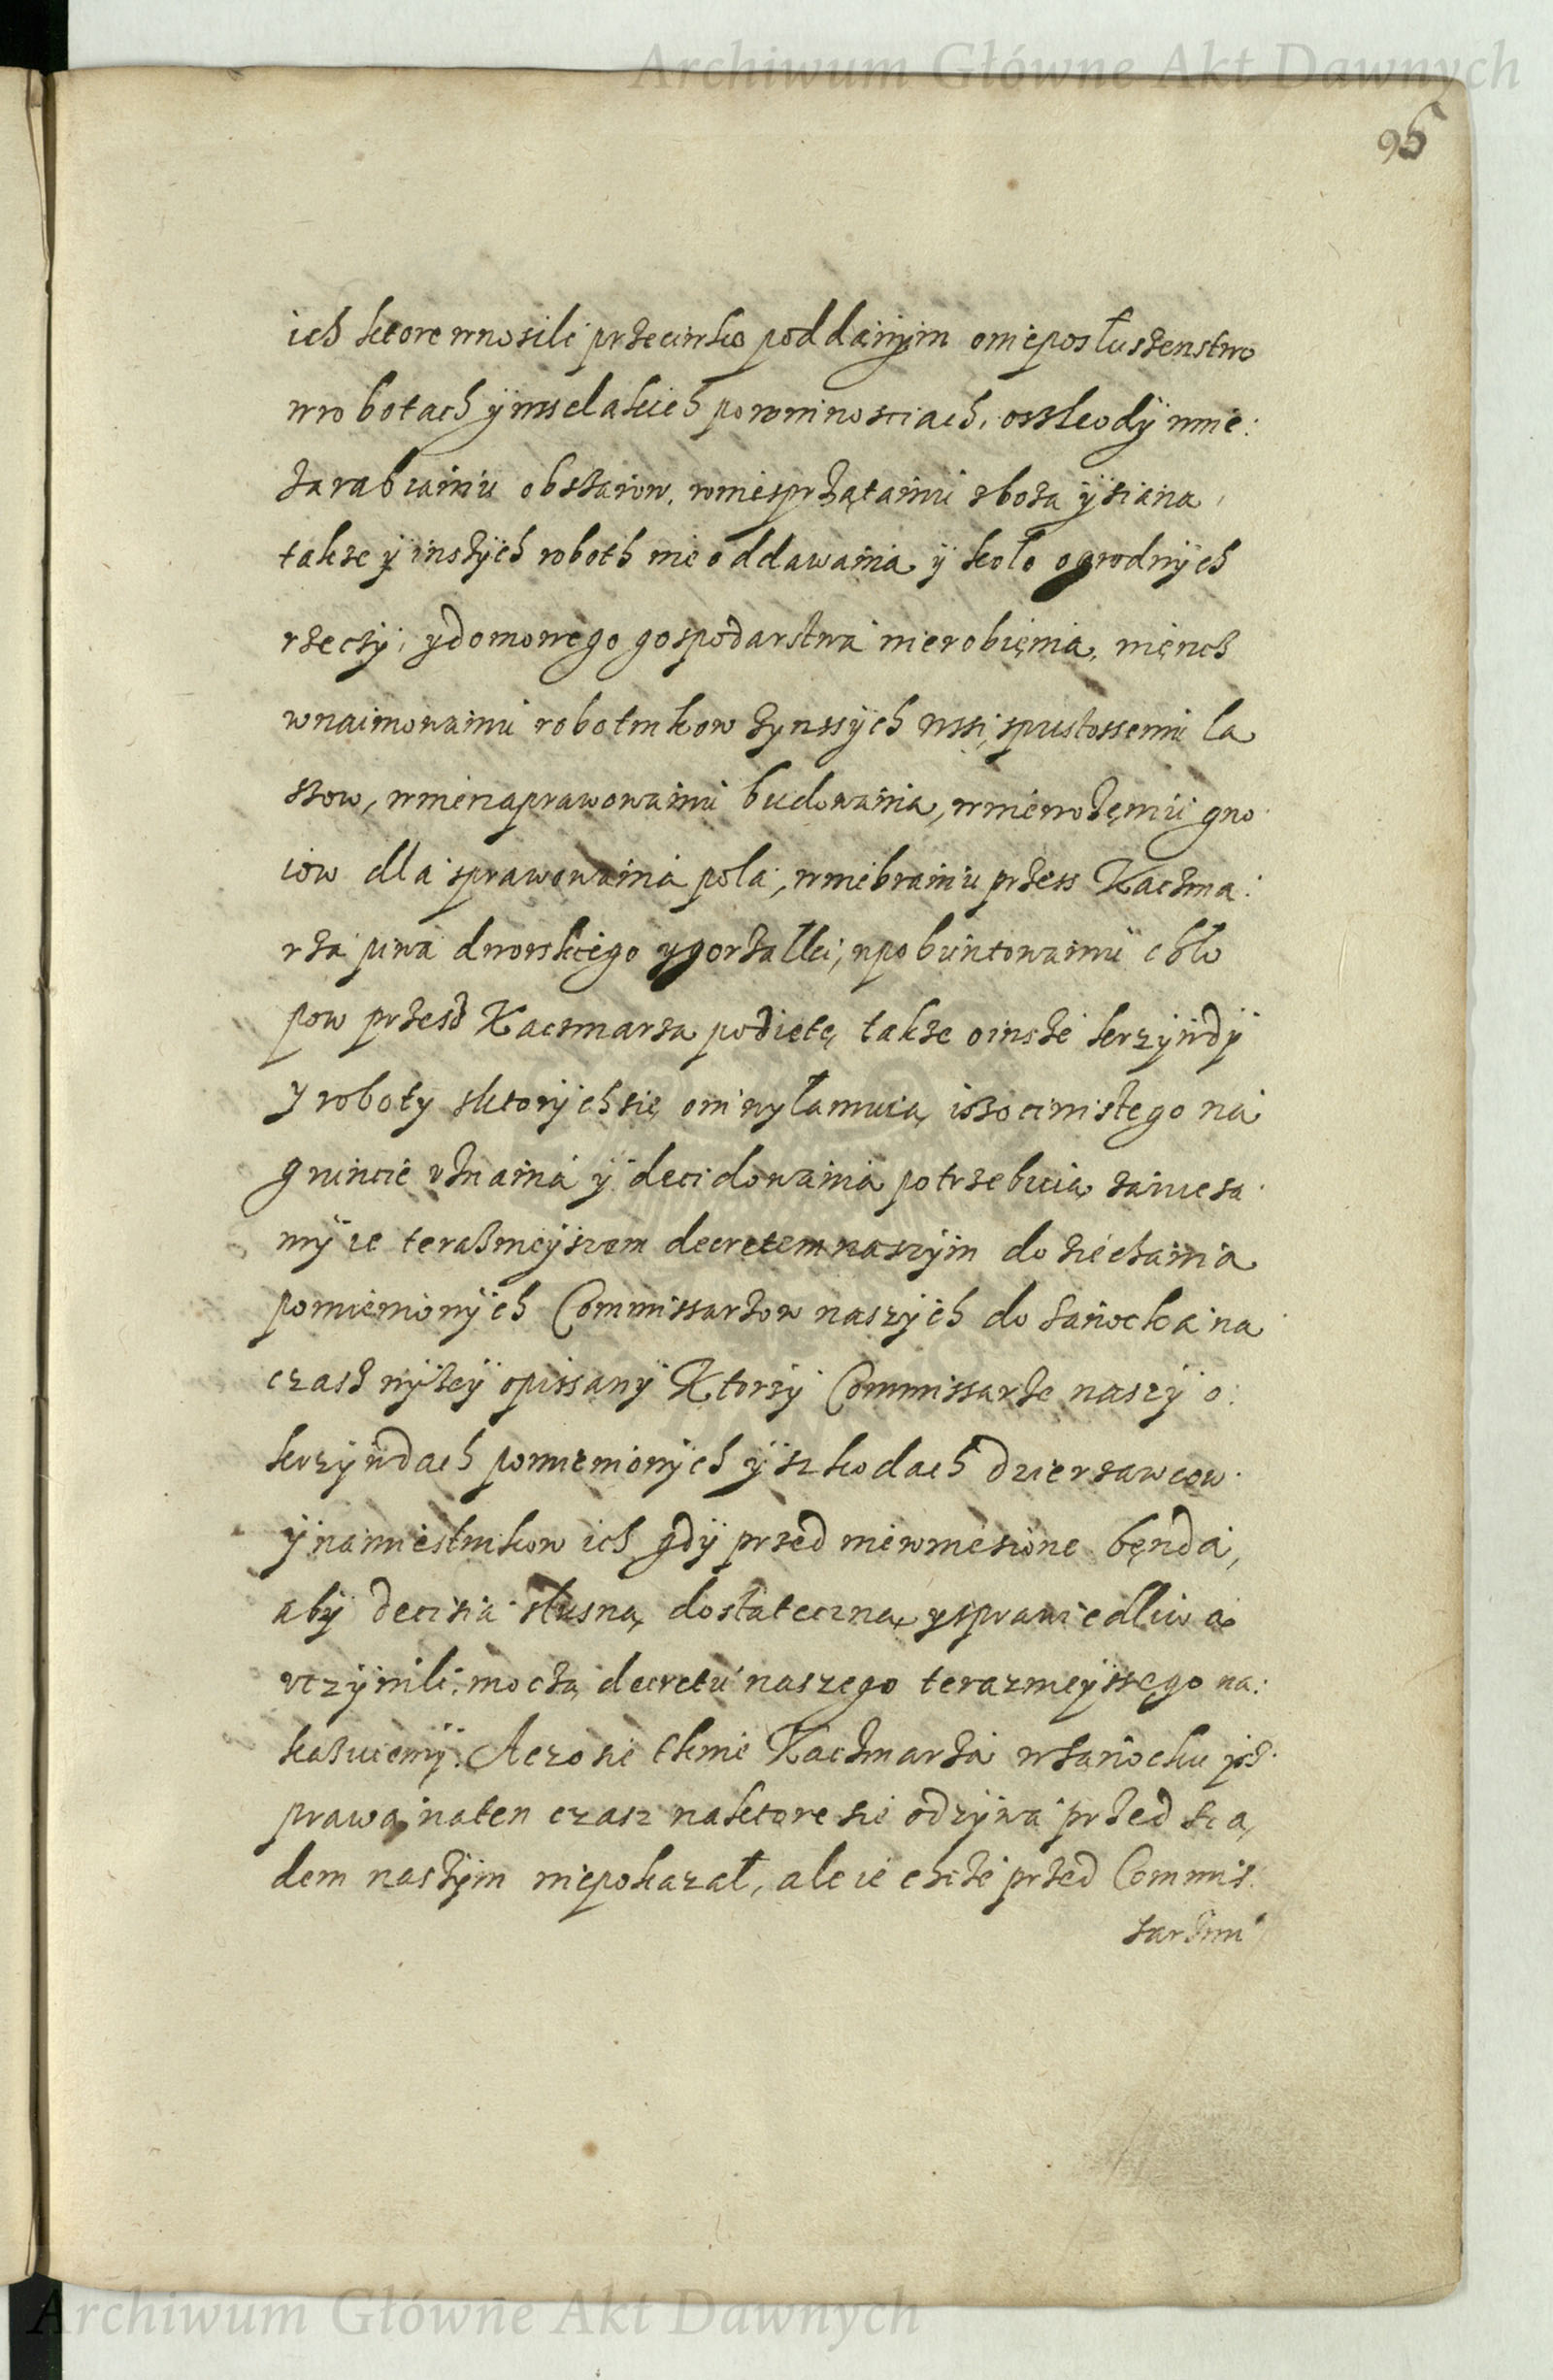 Archiwum Główne Akt Dawnych
95
ich ktore wnosili przeciwko poddanym o nieposłuszenstwo
w robotach ÿ wselakich powinnosciach, o sskodÿ w nie:
zarabianiu obszarow, w niesprzątaniu zboza ÿ siana,
takze ÿ inszÿch roboth nie oddawania ÿ koło ogrodnÿch
rzeczÿ, y domowego gospodarstwa nierobięnia,
w naimowaniu robotnikow z ynssÿch wssi, spustosseniu la
ssow, w nienaprawowaniu budowania, w niewozęniu gno
iow dla sprawowania pola, w niebraniu przess Kaczma:
rza piwa dworskiego y gorzałki, w pobuntowaniu chło
pow przesd Kaczmarza podietę, takze o insze krzÿwdÿ
y roboty s ktorÿch się oni wyłamuią, isz oczewistego na
gruncie uznania ÿ decidowania potrzebuią, zawiesza
mÿ ie teraßnieÿszem decretem naszÿm do ziechania
pomienionÿch Commissarzow naszÿch do Sanocka na
czasz nÿzeÿ opissanÿ Ktorzÿ Commissarze naszÿ o:
krzÿwdach pomienionÿch ÿ szkodach dzierzawcow
ÿ namiestnikow ich gdÿ przed nie wniesione bęnda,
abÿ decisia słusną, dostateczną y sprawiedliwą
uczÿnili, moczą decretu naszego terazniejssego na:
kaßuiemÿ. A czo sie tknie Kaczmarza w Sanoczku isz
prawa na ten czasz na ktore sie odzÿwa przed są,
dem naszÿm niepokazał, ale ie chcze przed Commis:
sarzmi
Archiwum Główne Akt Dawnych